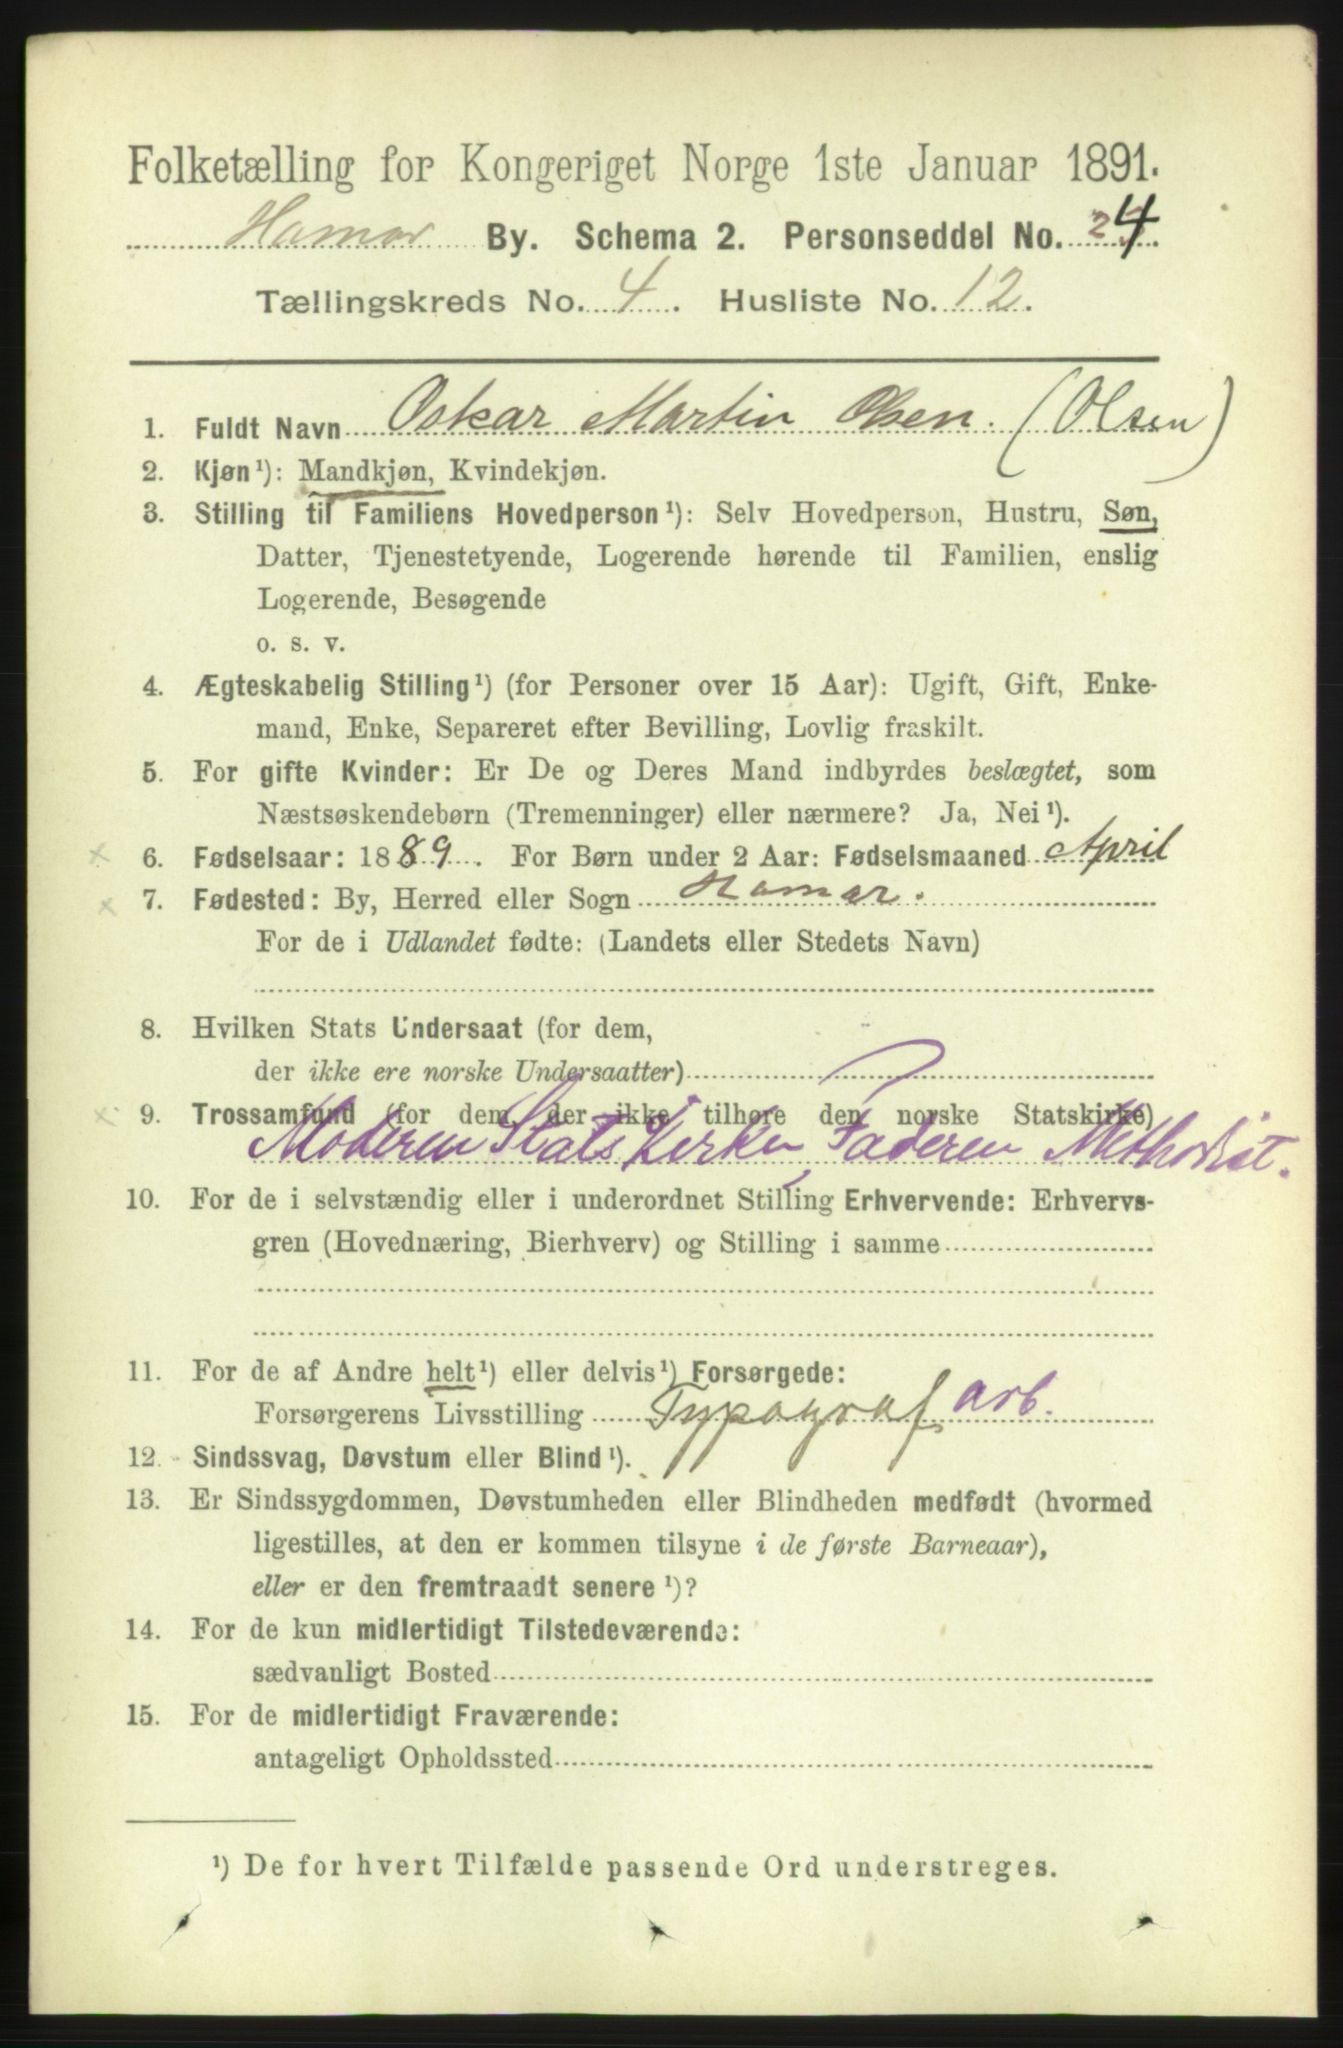 Folketælling for Kongeriget Norge 1ste Januar 1891.
Hamar By. Schema 2. Personseddel No. 24.
Tællingskreds No. 4. Husliste No. 12.
1. Fuldt Navn Oskar Martin Olsen. (Olsen)
2. Kjøn¹): Mandkjøn, Kvindekjøn.
3. Stilling til Familiens Hovedperson¹): Selv Hovedperson, Hustru, Søn,
Datter, Tjenestetyende, Logerende hørende til Familien, enslig
Logerende, Besøgende
o. s. v.
4. Ægteskabelig Stilling¹) (for Personer over 15 Aar): Ugift, Gift, Enke-
mand, Enke, Separeret efter Bevilling, Lovlig fraskilt.
5. For gifte Kvinder: Er De og Deres Mand indbyrdes beslægtet, som
Næstsøskendebørn (Tremenninger) eller nærmere? Ja, Nei¹).
× 6. Fødselsaar: 1889. For Børn under 2 Aar: Fødselsmaaned April
× 7. Fødested: By, Herred eller Sogn Hamar.
For de i Udlandet fødte: (Landets eller Stedets Navn)
8. Hvilken Stats Undersaat (for dem,
der ikke ere norske Undersaatter)
× 9. Trossamfund (for dem, der ikke tilhøre den norske Statskirke)
Moderen Stats Kirken, Faderen Methodist.
10. For de i selvstændig eller i underordnet Stilling Erhvervende: Erhvervs-
gren (Hovednæring, Bierhverv) og Stilling i samme
11. For de af Andre helt¹) eller delvis¹) Forsørgede:
Forsørgerens Livsstilling Typograf arb.
12. Sindssvag, Døvstum eller Blind¹).
13. Er Sindssygdommen, Døvstumheden eller Blindheden medfødt (hvormed
ligestilles, at den er kommen tilsyne i de første Barneaar),
eller er den fremtraadt senere¹)?
14. For de kun midlertidigt Tilstedeværende:
sædvanligt Bosted
15. For de midlertidigt Fraværende:
antageligt Opholdssted
¹) De for hvert Tilfælde passende Ord understreges.